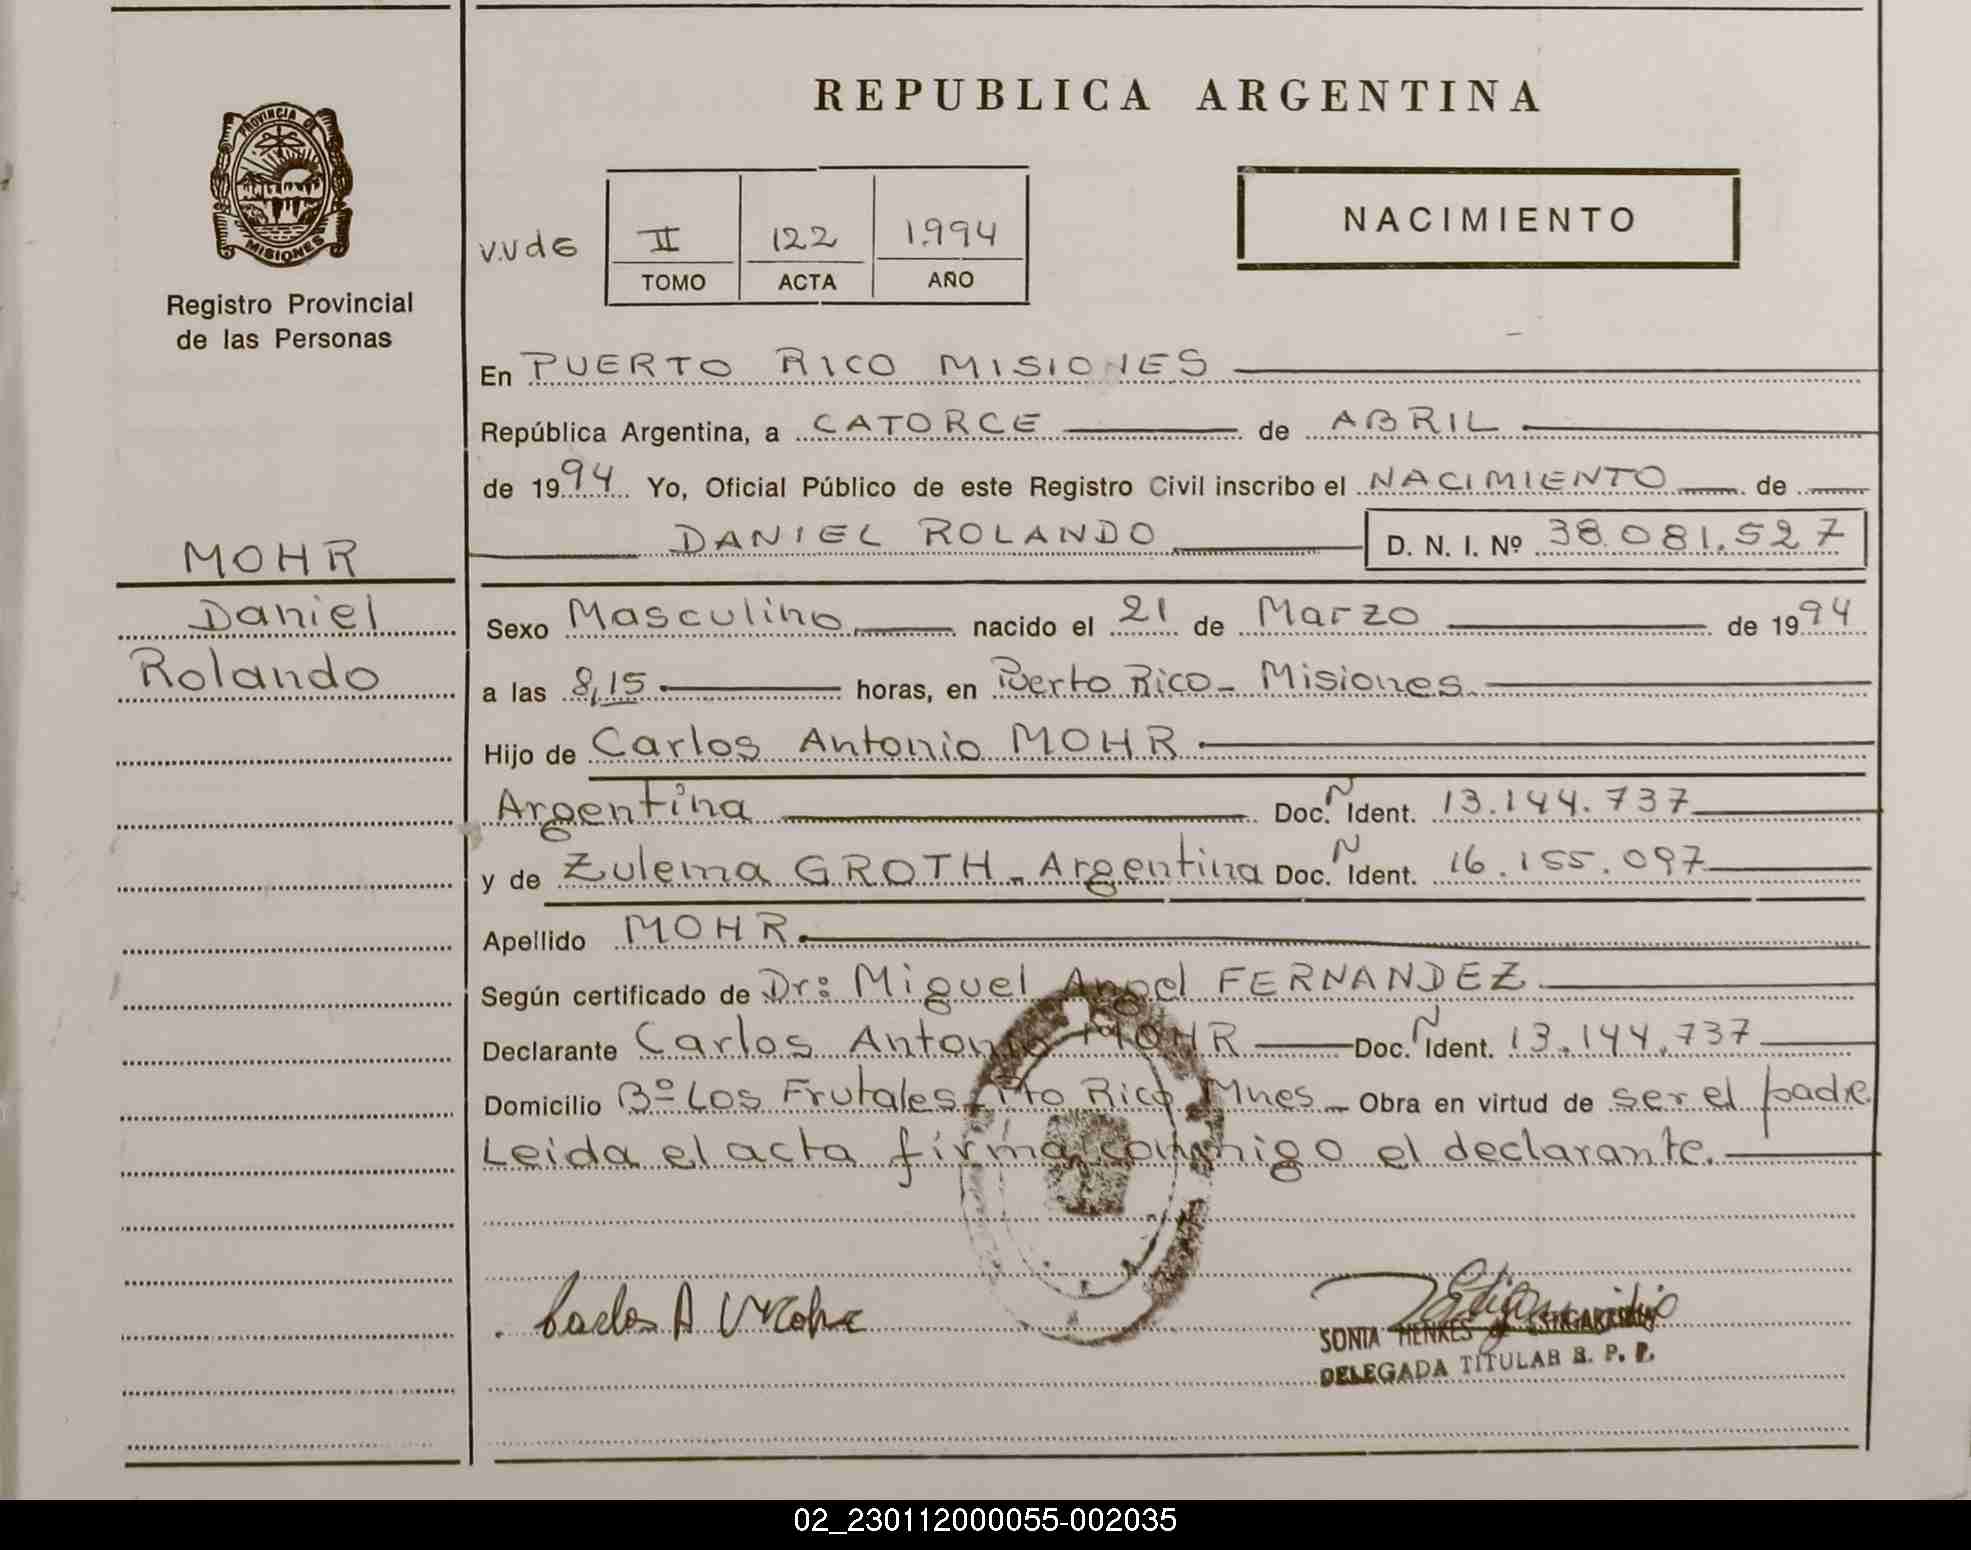 REPUBLICA ARGENTINA
PROVINCIA DE
MISIONES
Registro Provincial
de las Personas
NACIMIENTO
V.V de G
II 122 1.994
TOMO ACTA AÑO
En PUERTO RICO MISIONES
República Argentina, a CATORCE de ABRIL
de 1994 Yo, Oficial Público de este Registro Civil inscribo el NACIMIENTO de
DANIEL ROLANDO D. N. I. Nº 38.081.527
MOHR
Daniel
Rolando
Sexo Masculino nacido el 21 de Marzo de 1994
a las 8,15 horas, en Puerto Rico - Misiones
Hijo de Carlos Antonio MOHR
Argentina Doc. N Ident. 13.144.737
y de Zulema GROTH - Argentina Doc. N Ident. 16.155.097
Apellido MOHR
Según certificado de Dr: Miguel Angel FERNANDEZ
Declarante Carlos Antonio MOHR Doc. N Ident. 13.144.737
Domicilio Bº Los Frutales Pto Rico Mnes - Obra en virtud de ser el padre
Leida el acta firma conmigo el declarante.
Carlos A Mohr
SONIA HENKES de
DELEGADA TITULAR R. P. P.
02_230112000055-002035